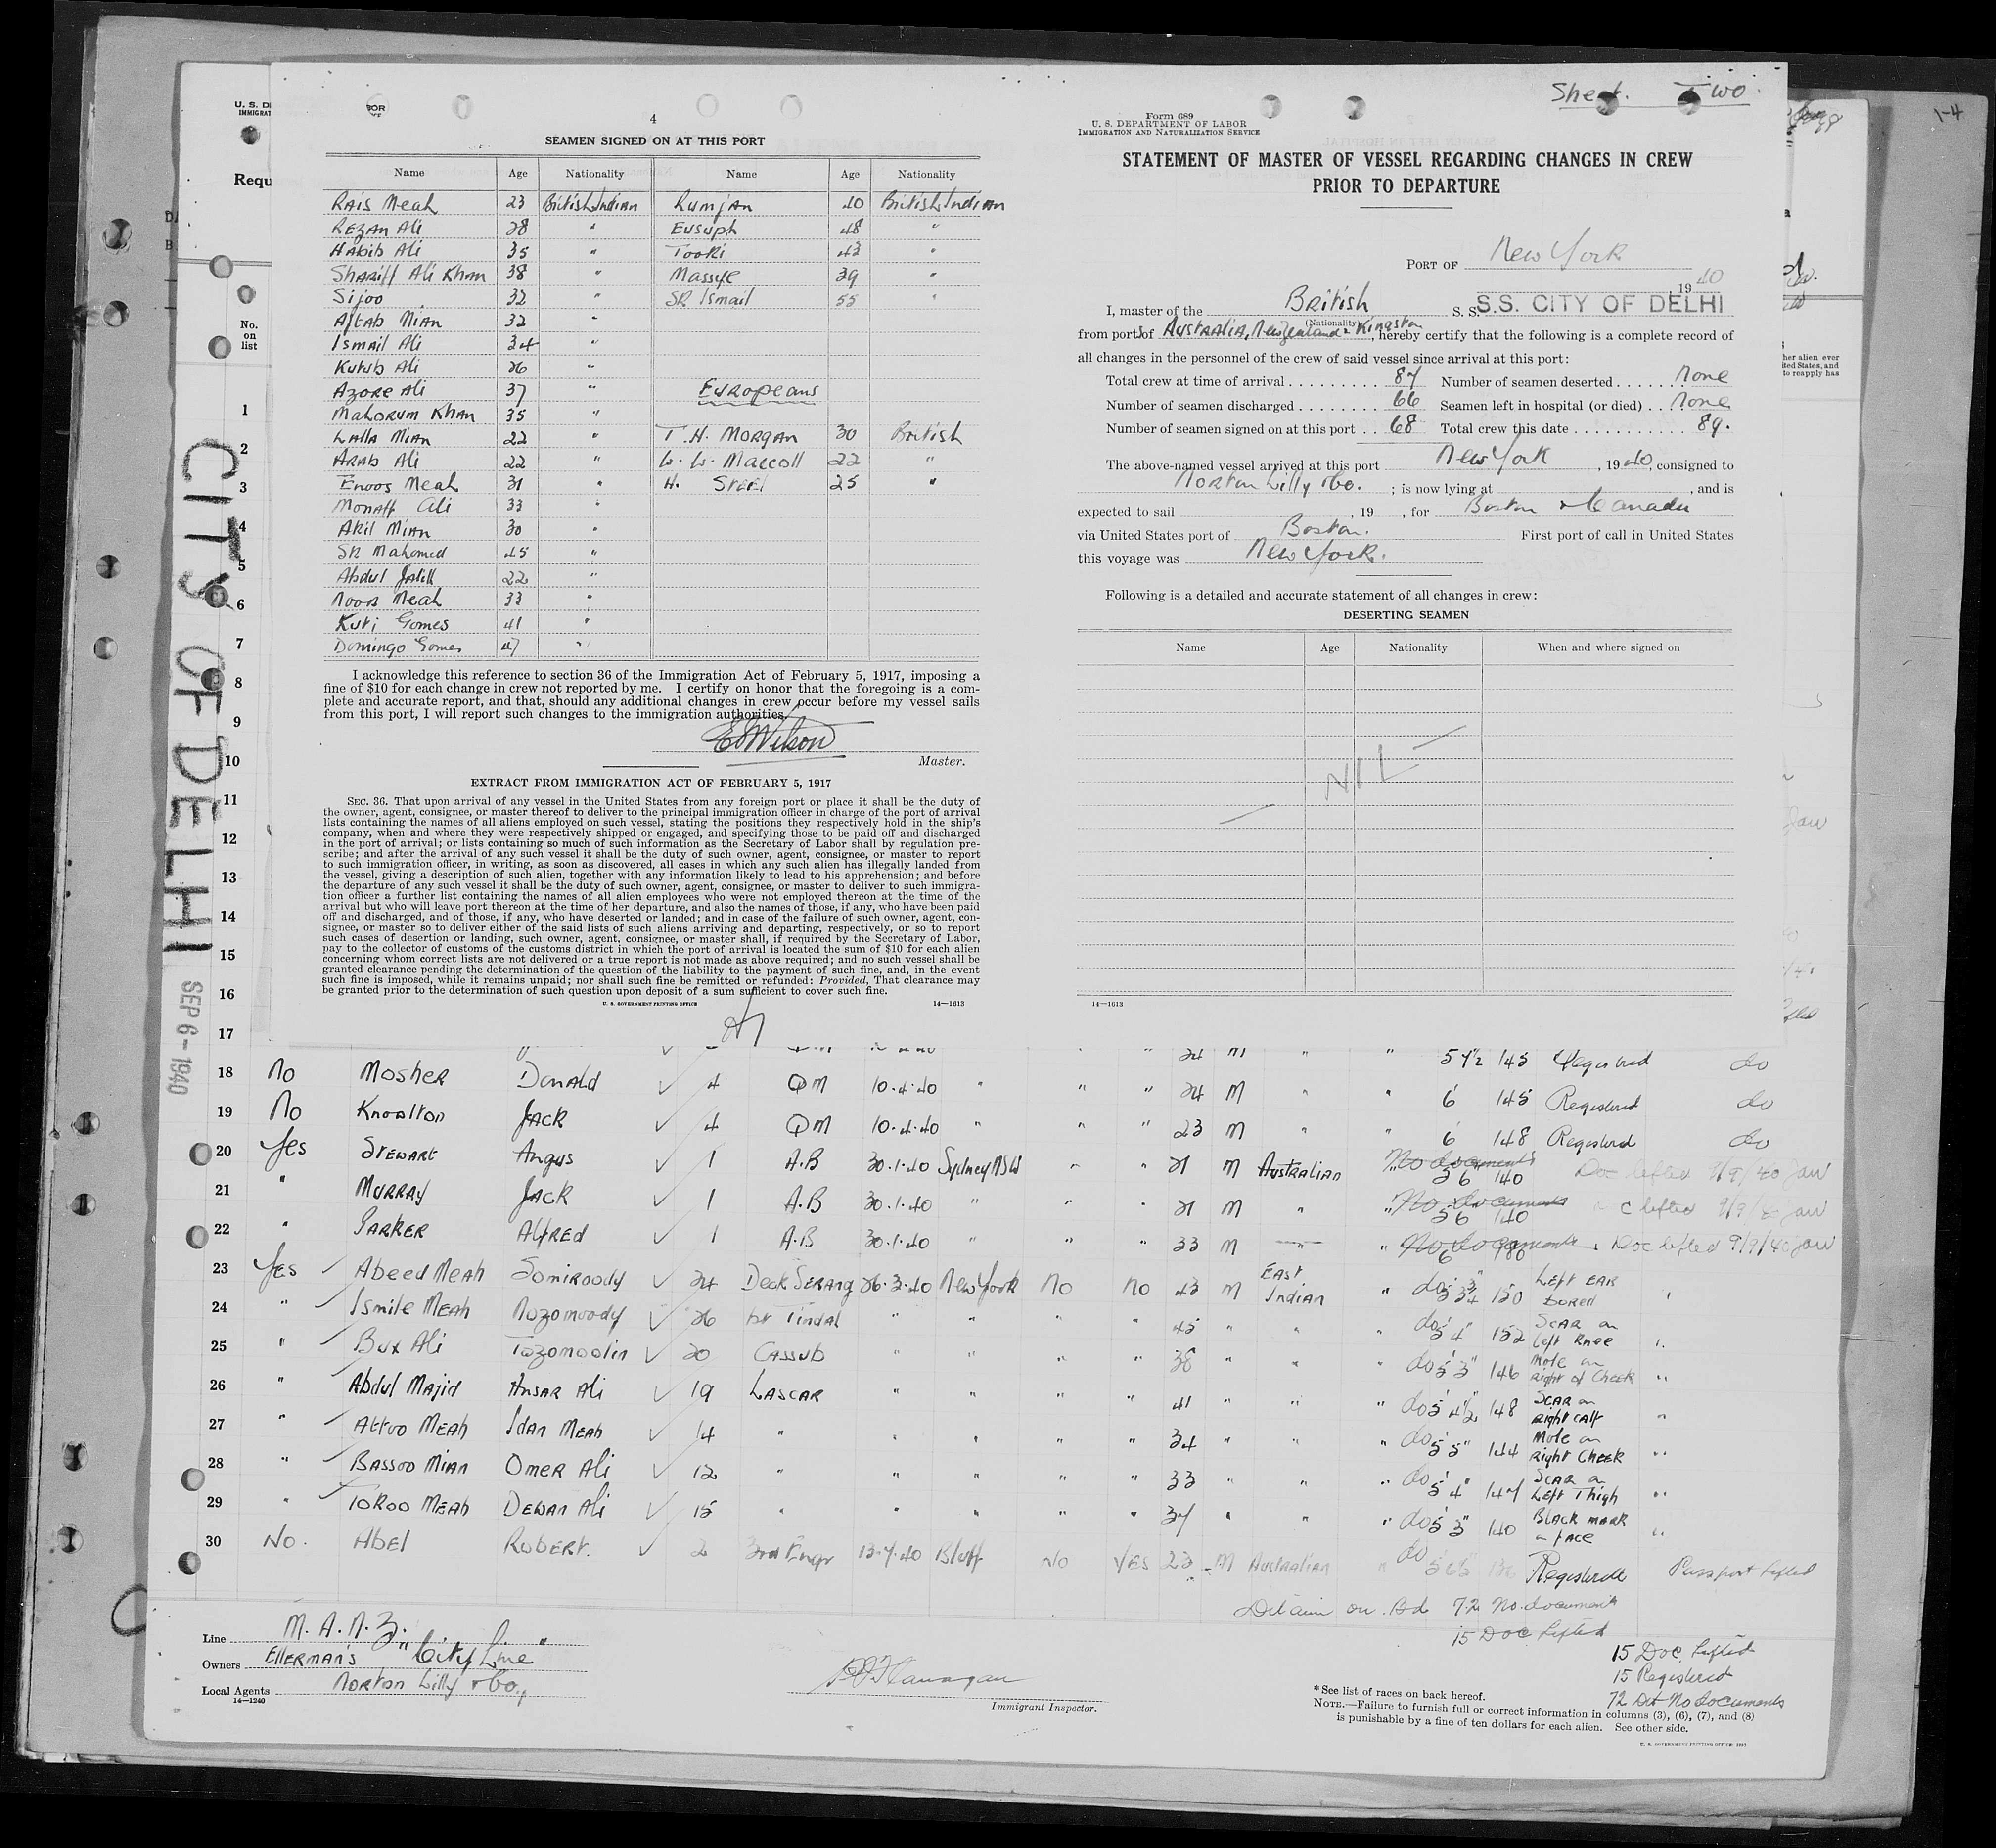 Sheet Two
1-4
U. S. D
IMMIGRAT
Requ
No.
on
list
CITY OF DELHI
SEP 6 - 1940
4
SEAMEN SIGNED ON AT THIS PORT
Name Age Nationality Name Age Nationality
Rais Meah 23 British Indian Rumjan 40 British Indian
Rezan Ali 28 " Eusuph 48 "
Habib Ali 35 " Tooki 43 "
Shariff Ali Khan 38 " Massye 39 "
Sijoo 32 " SK Ismail 55 "
Aftab Mian 32 "
Ismail Ali 34 "
Kutub Ali 26 "
Azore Ali 37 " Europeans
Mahorum Khan 35 "
Lalla Mian 22 " T. H. Morgan 30 British
Arab Ali 22 " W. W. Maccoll 22 "
Enoos Meah 31 " H. Steel 25 "
Monaff Ali 33 "
Akil Mian 30 "
SK Mahomed 45 "
Abdul Jalill 22 "
Noor Meah 33 "
Kuti Gomes 41 "
Domingo Gomes 47 "
I acknowledge this reference to section 36 of the Immigration Act of February 5, 1917, imposing a
fine of $10 for each change in crew not reported by me. I certify on honor that the foregoing is a com-
plete and accurate report, and that, should any additional changes in crew occur before my vessel sails
from this port, I will report such changes to the immigration authorities.
Wilson
Master.
EXTRACT FROM IMMIGRATION ACT OF FEBRUARY 5, 1917
SEC. 36. That upon arrival of any vessel in the United States from any foreign port or place it shall be the duty of
the owner, agent, consignee, or master thereof to deliver to the principal immigration officer in charge of the port of arrival
lists containing the names of all aliens employed on such vessel, stating the positions they respectively hold in the ship's
company, when and where they were respectively shipped or engaged, and specifying those to be paid off and discharged
in the port of arrival; or lists containing so much of such information as the Secretary of Labor shall by regulation pre-
scribe; and after the arrival of any such vessel it shall be the duty of such owner, agent, consignee, or master to report
to such immigration officer, in writing, as soon as discovered, all cases in which any such alien has illegally landed from
the vessel, giving a description of such alien, together with any information likely to lead to his apprehension; and before
the departure of any such vessel it shall be the duty of such owner, agent, consignee, or master to deliver to such immigra-
tion officer a further list containing the names of all alien employees who were not employed thereon at the time of the
arrival but who will leave port thereon at the time of her departure, and also the names of those, if any, who have been paid
off and discharged, and of those, if any, who have deserted or landed; and in case of the failure of such owner, agent, con-
signee, or master so to deliver either of the said lists of such aliens arriving and departing, respectively, or so to report
such cases of desertion or landing, such owner, agent, consignee, or master shall, if required by the Secretary of Labor,
pay to the collector of customs of the customs district in which the port of arrival is located the sum of $10 for each alien
concerning whom correct lists are not delivered or a true report is not made as above required; and no such vessel shall be
granted clearance pending the determination of the question of the liability to the payment of such fine, and, in the event
such fine is imposed, while it remains unpaid; nor shall such fine be remitted or refunded: Provided, That clearance may
be granted prior to the determination of such question upon deposit of a sum sufficient to cover such fine.
U. S. GOVERNMENT PRINTING OFFICE 14—1613
Form 689
U. S. DEPARTMENT OF LABOR
IMMIGRATION AND NATURALIZATION SERVICE
STATEMENT OF MASTER OF VESSEL REGARDING CHANGES IN CREW
PRIOR TO DEPARTURE
PORT OF New York
1940
I, master of the British S. S. S.S. CITY OF DELHI
(Nationality)
from port of Australia, New Zealand & Kingston, hereby certify that the following is a complete record of
all changes in the personnel of the crew of said vessel since arrival at this port:
Total crew at time of arrival 87 Number of seamen deserted None
Number of seamen discharged 66 Seamen left in hospital (or died) None
Number of seamen signed on at this port 68 Total crew this date 89.
The above-named vessel arrived at this port New York, 1940, consigned to
Norton Lilly & Co. ; is now lying at , and is
expected to sail , 19 , for Boston & Canada
via United States port of Boston. First port of call in United States
this voyage was New York.
Following is a detailed and accurate statement of all changes in crew:
DESERTING SEAMEN
Name Age Nationality When and where signed on
NIL
14—1613
her alien ever
ited States, and
to reapply has
1
2
3
4
5
6
7
8
9
10
11
12
13
14
15
16
17
18 No Mosher Donald 4 QM 10.4.40 " " " 24 M " " 6 145 Registered do
19 No Knowlton Jack 4 QM 10.4.40 " " " 23 M " " 6 148 Registered do
20 Yes Stewart Angus 1 A.B 30.1.40 Sydney NSW " " 21 M Australian " No documents 5 6 140 Doc lifted 9/9/40 Jaw
21 " Murray Jack 1 A.B 30.1.40 " " " 21 M " " No documents 5 6 140 lifted 9/9/40 Jaw
22 " Parker Alfred 1 A.B 30.1.40 " " " 33 M " " No documents 6 180 Doc lifted 9/9/40 Jaw
23 Yes Abeed Meah Somiroody 24 Deck Serang 26.3.40 New York No No 43 M East Indian " do 5 3¾ 150 Left ear bored "
24 " Ismile Meah Nozomoody 26 1st Tindal " " " " 45 " " " do 5 4" 152 Scar on left knee "
25 " Bux Ali Tozomoolin 20 Cassub " " " " 38 " " " do 5 3" 146 Mole on right of cheek "
26 " Abdul Majid Ansar Ali 19 Lascar " " " " 41 " " " do 5 4½ 148 Scar on right calf "
27 " Attuo Meah Idan Meah 14 " " " " " 34 " " " do 5 5" 144 Mole on right cheek "
28 " Bassoo Mian Omer Ali 12 " " " " " 33 " " " do 5 4" 147 Scar on left thigh "
29 " Toroo Meah Dewan Ali 15 " " " " " 37 " " " do 5 3" 140 Black mark on face "
30 No. Abel Robert. 2 3rd Engr 13.7.40 Bluff No Yes 23 M Australian " do Registered Passport lifted
Detain on Bd 72 No documents
15 Doc lifted
15 Doc. lifted
15 Registered
72 Det No documents
Line M.A.N.Z.
Owners Ellerman's "City Line"
Local Agents Norton Lilly & Co.,
14—1240
Flanagan
Immigrant Inspector.
*See list of races on back hereof.
NOTE.—Failure to furnish full or correct information in columns (3), (6), (7), and (8)
is punishable by a fine of ten dollars for each alien. See other side.
U. S. GOVERNMENT PRINTING OFFICE